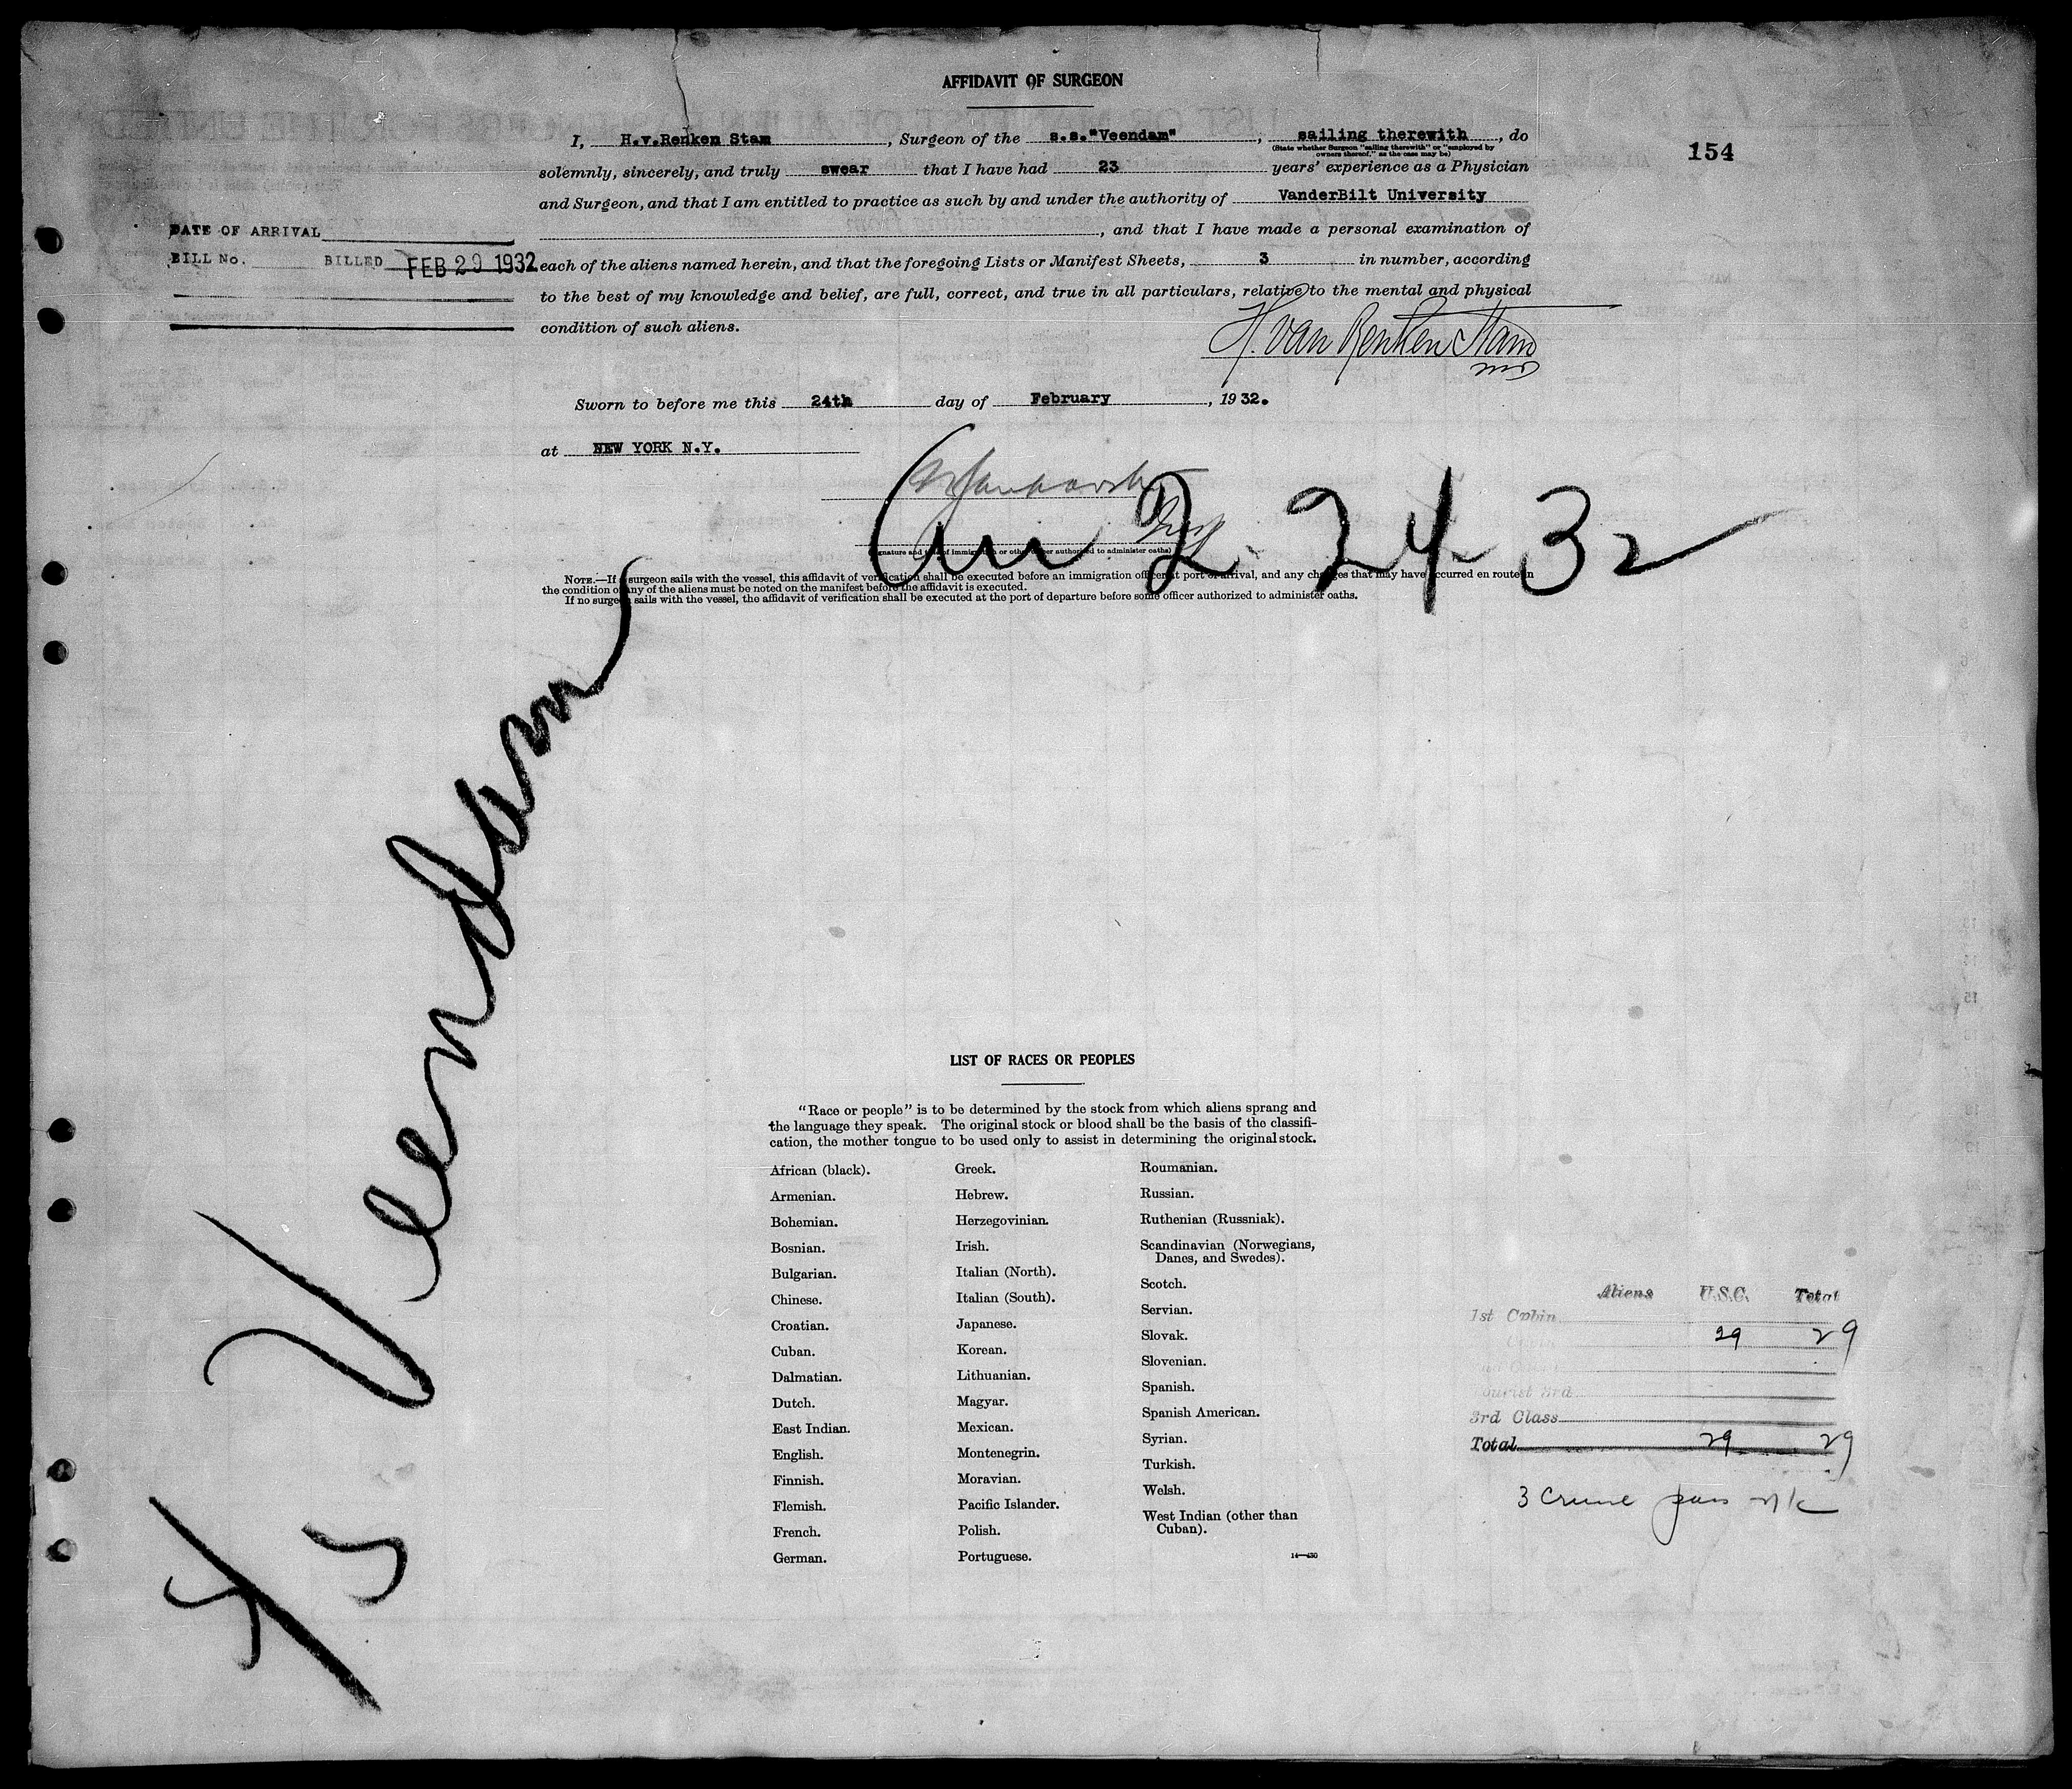 AFFIDAVIT OF SURGEON
I, H.v.Renken Stam, Surgeon of the s.s."Veendam", sailing therewith, do
(State whether Surgeon "sailing therewith" or "employed by
owners thereof," as the case may be)
154
solemnly, sincerely, and truly swear that I have had 23 years' experience as a Physician
and Surgeon, and that I am entitled to practice as such by and under the authority of VanderBilt University
, and that I have made a personal examination of
DATE OF ARRIVAL
BILL No. BILLED FEB 29 1932
each of the aliens named herein, and that the foregoing Lists or Manifest Sheets, 3 in number, according
to the best of my knowledge and belief, are full, correct, and true in all particulars, relative to the mental and physical
condition of such aliens.
H. van Renken Stam
MD
Sworn to before me this 24th day of February, 1932.
at NEW YORK N.Y.
2-24-32
(Signature and title of immigration or other officer authorized to administer oaths)
NOTE.—If a surgeon sails with the vessel, this affidavit of verification shall be executed before an immigration officer at port of arrival, and any changes that may have occurred en route in
the condition of any of the aliens must be noted on the manifest before the affidavit is executed.
If no surgeon sails with the vessel, the affidavit of verification shall be executed at the port of departure before some officer authorized to administer oaths.
Veendam
LIST OF RACES OR PEOPLES
"Race or people" is to be determined by the stock from which aliens sprang and
the language they speak. The original stock or blood shall be the basis of the classifi-
cation, the mother tongue to be used only to assist in determining the original stock.
African (black).
Armenian.
Bohemian.
Bosnian.
Bulgarian.
Chinese.
Croatian.
Cuban.
Dalmatian.
Dutch.
East Indian.
English.
Finnish.
Flemish.
French.
German.
Greek.
Hebrew.
Herzegovinian.
Irish.
Italian (North).
Italian (South).
Japanese.
Korean.
Lithuanian.
Magyar.
Mexican.
Montenegrin.
Moravian.
Pacific Islander.
Polish.
Portuguese.
Roumanian.
Russian.
Ruthenian (Russniak).
Scandinavian (Norwegians,
Danes, and Swedes).
Scotch.
Servian.
Slovak.
Slovenian.
Spanish.
Spanish American.
Syrian.
Turkish.
Welsh.
West Indian (other than
Cuban).
14—430
Aliens U.S.C. Total
1st Cabin
29 29
Tourist 3rd
3rd Class
Total 29 29
3 Cruise pass